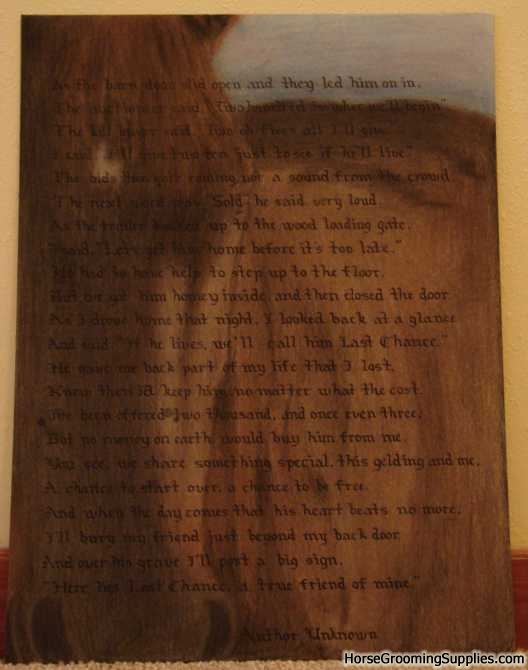 As the barn door slid open and they led him on in,
The auctioneer said, "Two hundred is where we'll begin"
The kill buyer said, "Two oh five's all I'll give."
I said, "I'll give two ten just to see if he'll live."
The bids then quit coming not a sound from the crowd
The next word was "Sold" he said very loud.
As the trailer backed up to the wood loading gate,
I said, "Let's get him home before it's too late."
He had to have help to step up to the floor.
But we got him inside, and then closed the door
As I drove home that night, I looked back at a glance
And said, "If he lives, we'll call him Last Chance."
He gave me back part of my life that I lost,
Knew then I'd keep him, no matter what the cost.
I've been offered two thousand, and once even three,
But no money on earth would buy him from me.
You see, we share something special, this gelding and me,
A chance to start over, a chance to be free.
And when the day comes that his heart beats no more,
I'll bury my friend just beyond my back door.
And over his grave I'll post a big sign,
"Here lies Last Chance, a true friend of mine."
Author Unknown
HorseGroomingSupplies.com